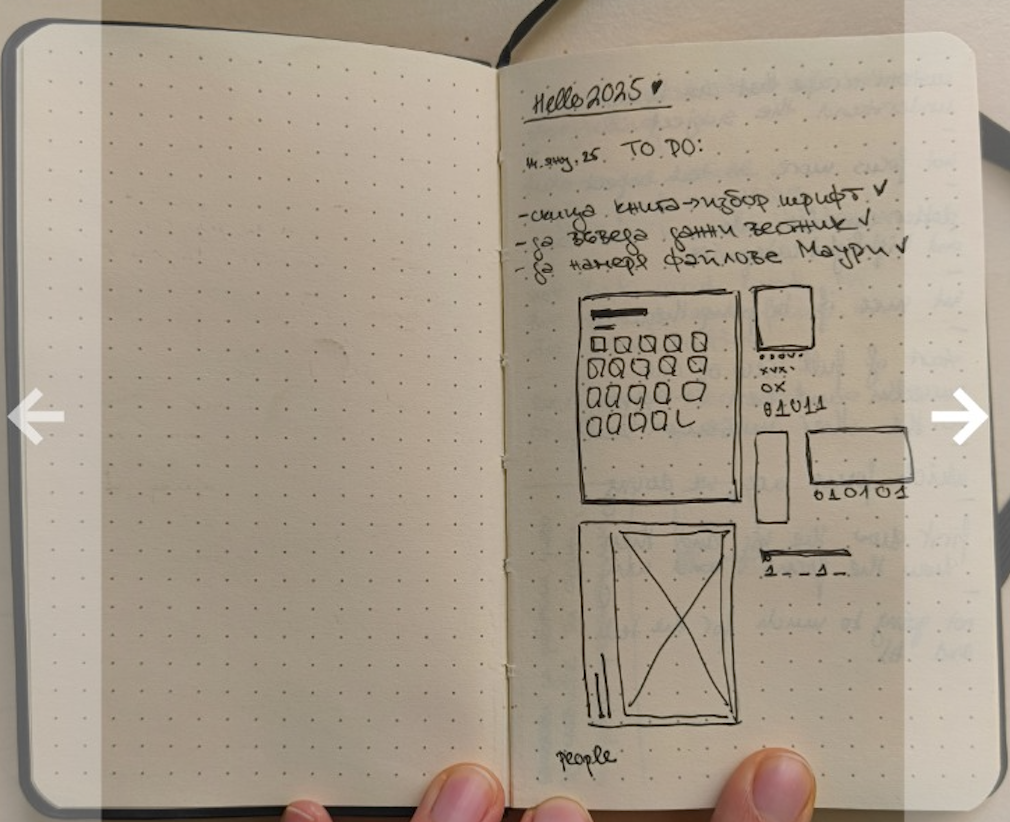 Hello 2025 ♥
14. яну. 25. TO DO:
- скица книга → избор шрифт ✓
- да въведа данни вестник ✓
- да намеря файлове Маури ✓
OX
01011
010101
1 - - 1 -
people